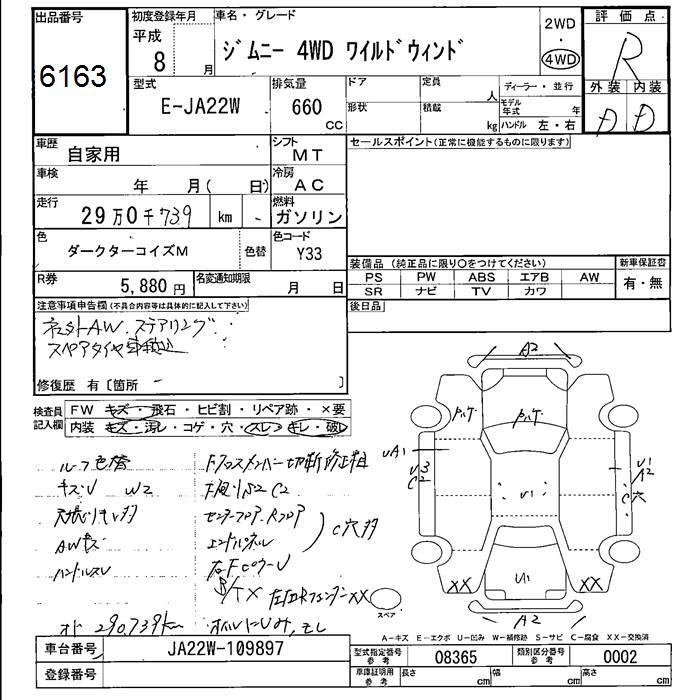 出品番号
6163
初度登録年月
平成
8 月
車名・グレード
ジムニー 4WD ワイルドウィンド
2WD
・
4WD
評価点
R
外装 内装
D D
型式
E-JA22W
排気量
660
CC
ドア
形状
定員
人
積載
kg
ディーラー・並行
モデル年式 年
ハンドル 左・右
車歴
自家用
シフト
MT
車検
年 月( 日)
冷房
AC
走行
29万0千739 km
燃料
ガソリン
色
ダークターコイズM
色替
色コード
Y33
R券
5,880 円
名変通知期限
月 日
セールスポイント(正常に機能するものに限ります)
装備品 (純正品に限り○をつけてください)
PS PW ABS エアB AW
SR ナビ TV カワ
新車保証書
有・無
後日品
注意事項申告欄(不具合内容等は具体的に記入して下さい)
AW ステアリング
スペアタイヤ
修復歴 有〔箇所 〕
検査員
記入欄
FW キズ・飛石・ヒビ割・リペア跡・×要
内装 キズ・汚レ・コゲ・穴・スレ・キレ・破レ
ルーフ色褪
キズU W2
AWキズ
ハンドルスレ
オド 290,739km
切断修正粗
C2
センターフロア Rフロア
エンドパネル
C穴多
A2
UA1
U3
C2
U1
U1
A2
C穴
U1
XX
XX
A2
スペア
A-キズ E-エクボ U-凹み W-補修跡 S-サビ C-腐食 XX-交換済
車台番号
JA22W-109897
登録番号
型式指定番号
参考
08365
類別区分番号
参考
0002
車庫証明用
参考
長さ cm
幅 cm
高さ cm